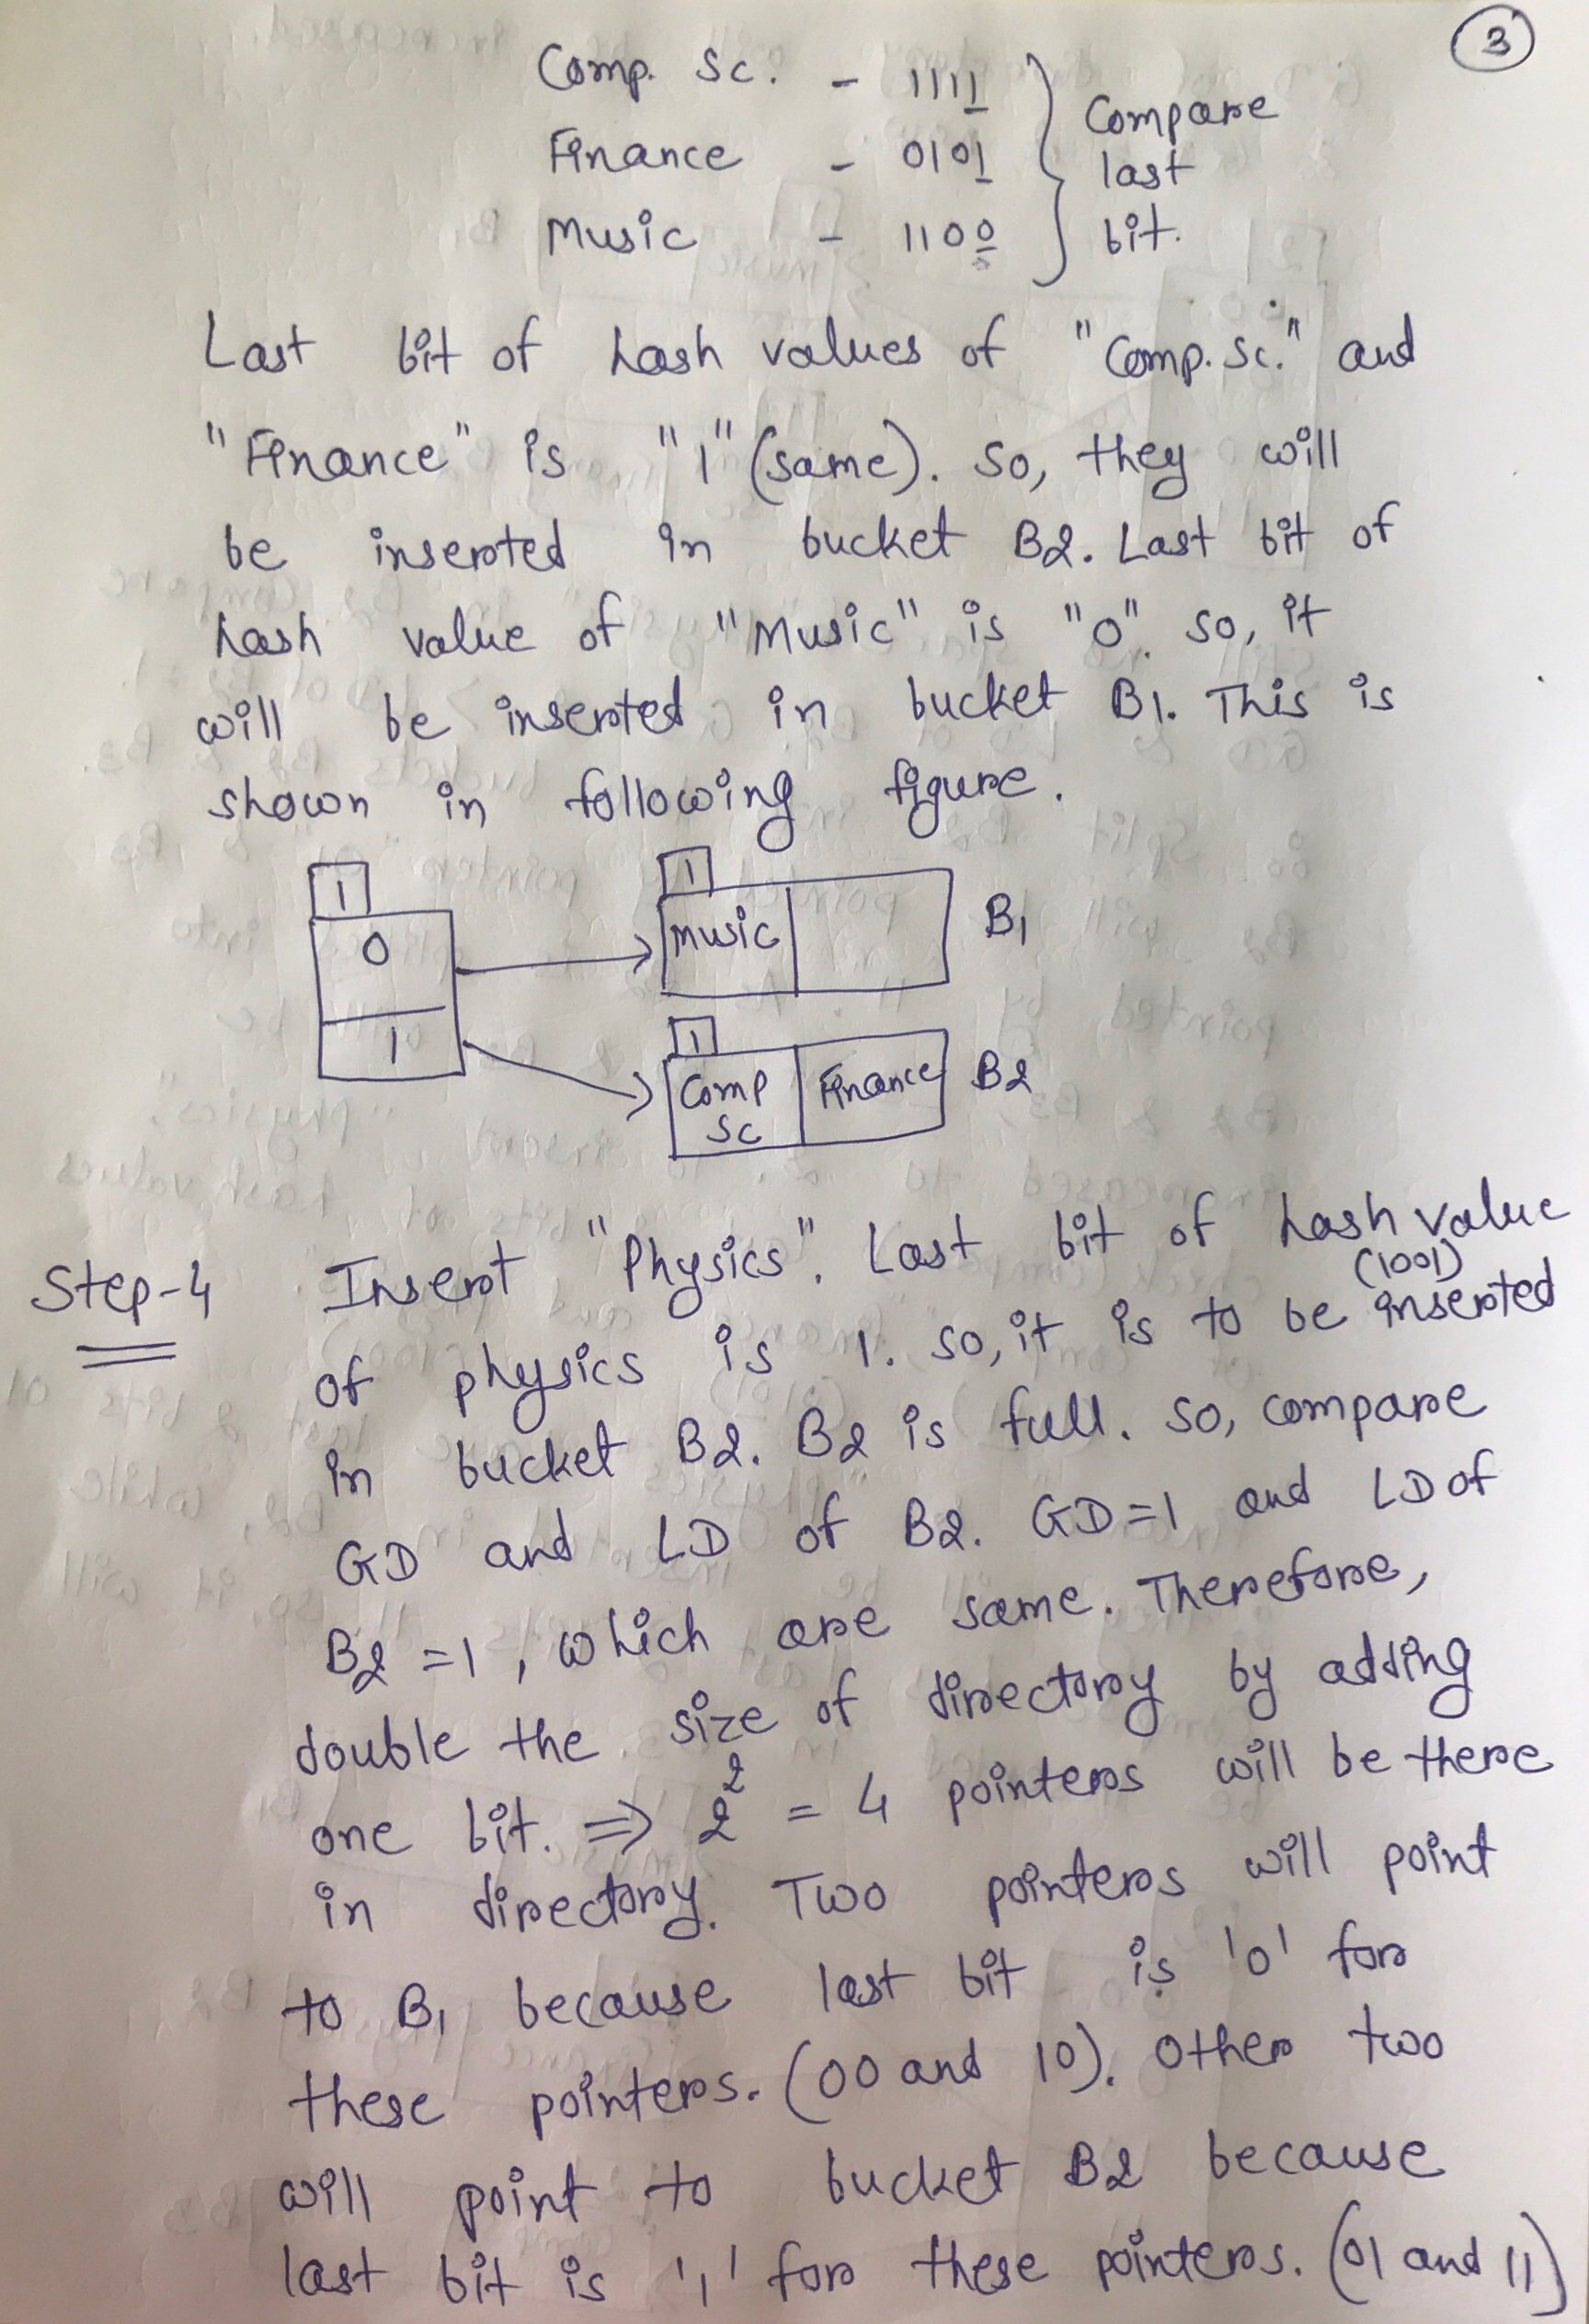 3
Comp. Sc. - 1111
Finance - 0101
Music - 1100
Compare
last
bit.
Last bit of hash values of "Comp. Sc." and
"Finance" is "1" (same). So, they will
be inserted in bucket B2. Last bit of
hash value of "Music" is "0". So, it
will be inserted in bucket B1. This is
shown in following figure.
1
0
1
1
Music
B1
1
Comp Finance B2
Sc
Step-4 Insert "Physics". Last bit of hash value
(1001)
of physics is 1. So, it is to be inserted
in bucket B2. B2 is full. So, compare
GD and LD of B2. GD=1 and LD of
B2 =1, which are same. Therefore,
double the size of directory by adding
one bit. ⇒ 2² = 4 pointers will be there
in directory. Two pointers will point
to B1 because last bit is '0' for
these pointers. (00 and 10). Other two
will point to bucket B2 because
last bit is '1' for these pointers. (01 and 11)